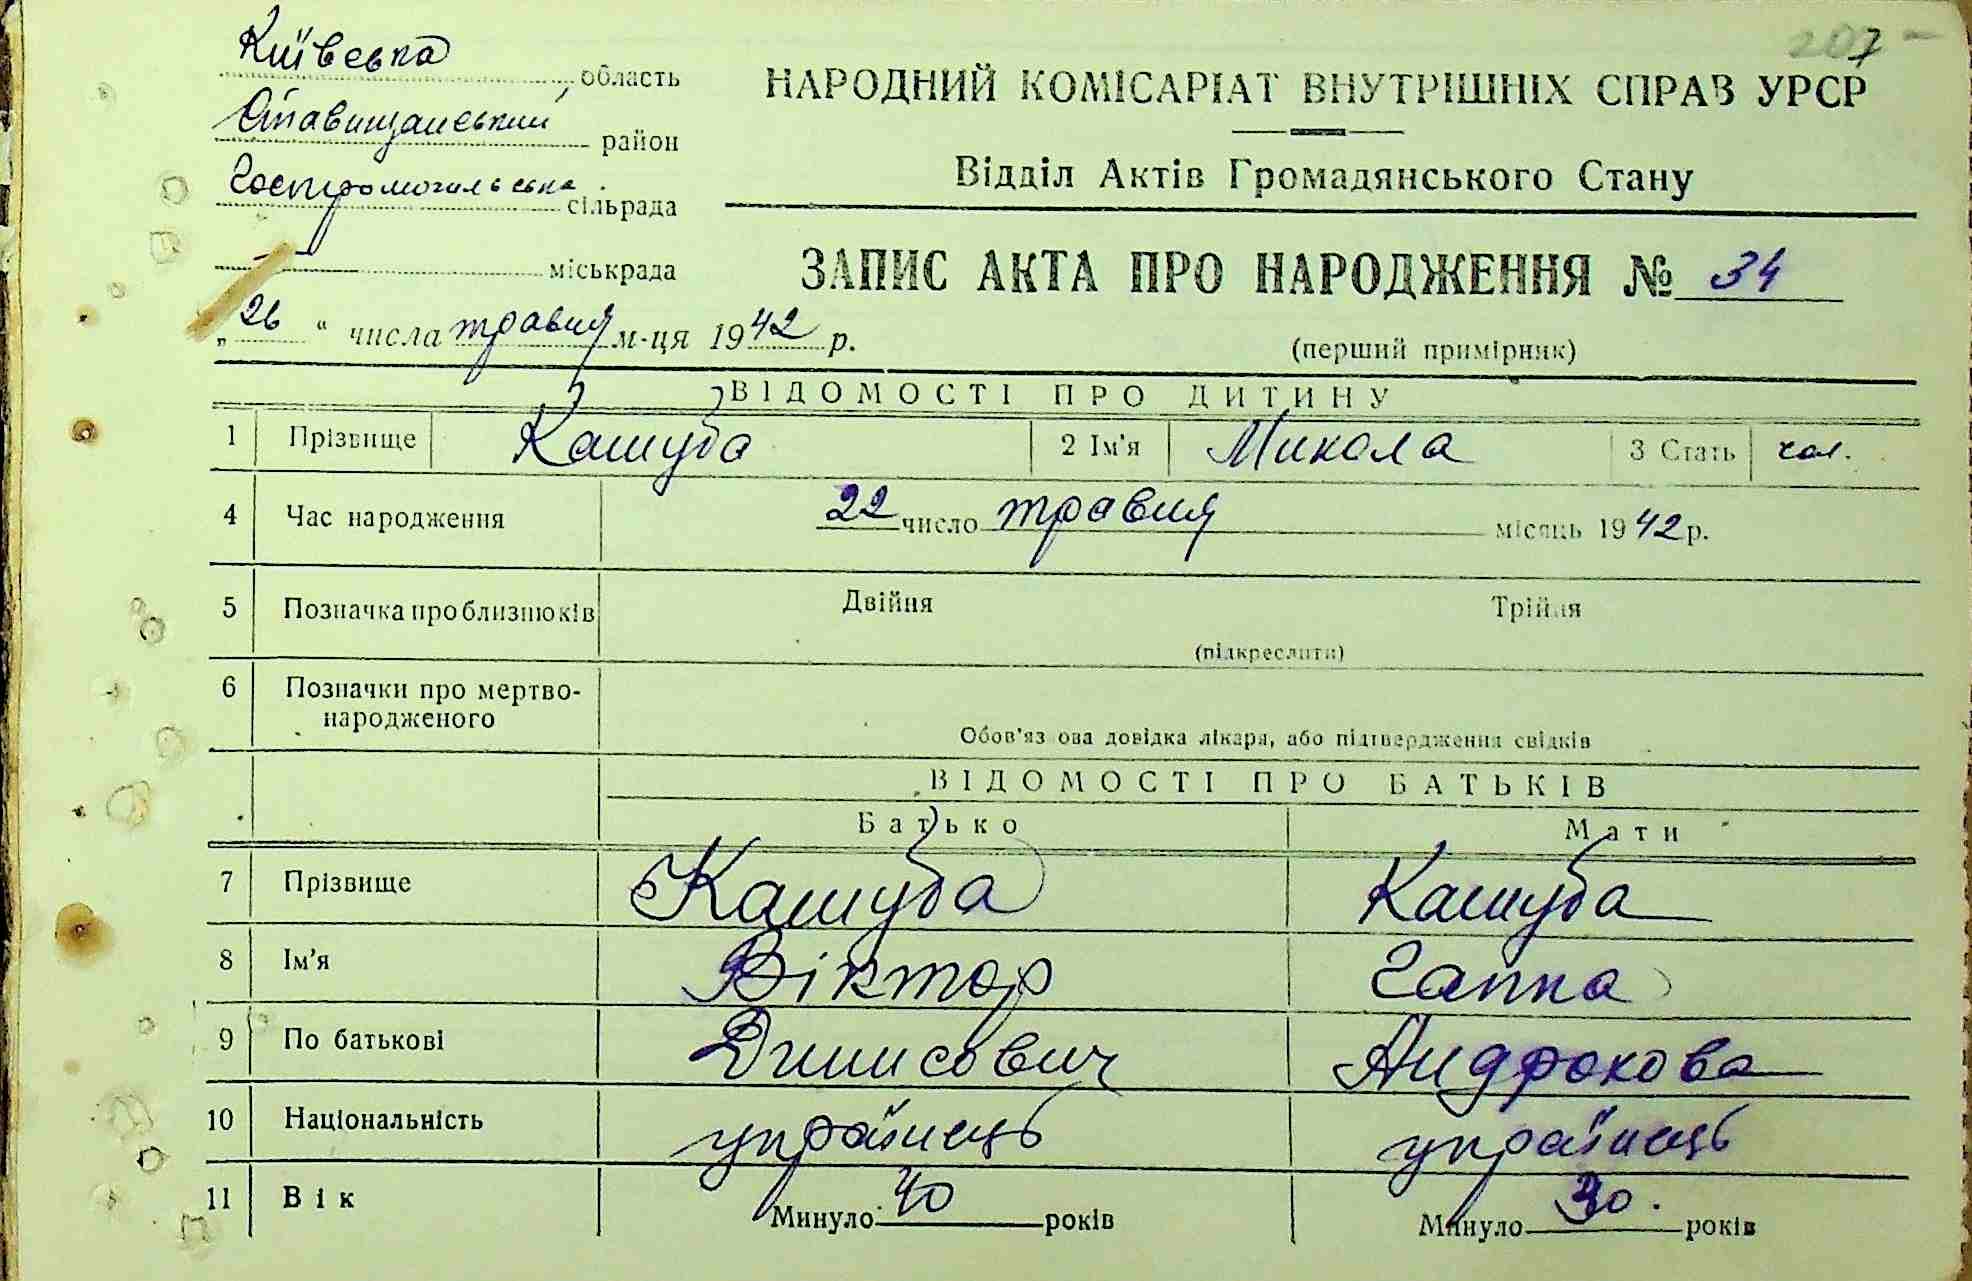 207
Київська область
НАРОДНИЙ КОМІСАРІАТ ВНУТРІШНІХ СПРАВ УРСР
Ставищанський район
Відділ Актів Громадянського Стану
Гостромогильська сільрада
— міськрада
ЗАПИС АКТА ПРО НАРОДЖЕННЯ № 34
„26“ числа травня м-ця 1942 р.
(перший примірник)
ВІДОМОСТІ ПРО ДИТИНУ
1 Прізвище Кашуба 2 Ім'я Микола 3 Стать чол.
4 Час народження 22 число травня місяць 1942 р.
5 Позначка про близнюків Двійня Трійня
(підкреслити)
6 Позначки про мертво-
народженого
Обов'язкова довідка лікаря, або підтвердження свідків
ВІДОМОСТІ ПРО БАТЬКІВ
Батько Мати
7 Прізвище Кашуба Кашуба
8 Ім'я Віктор Гапка
9 По батькові Динисович Андрокова
10 Національність українець українець
11 Вік Минуло 40 років Минуло 30. років